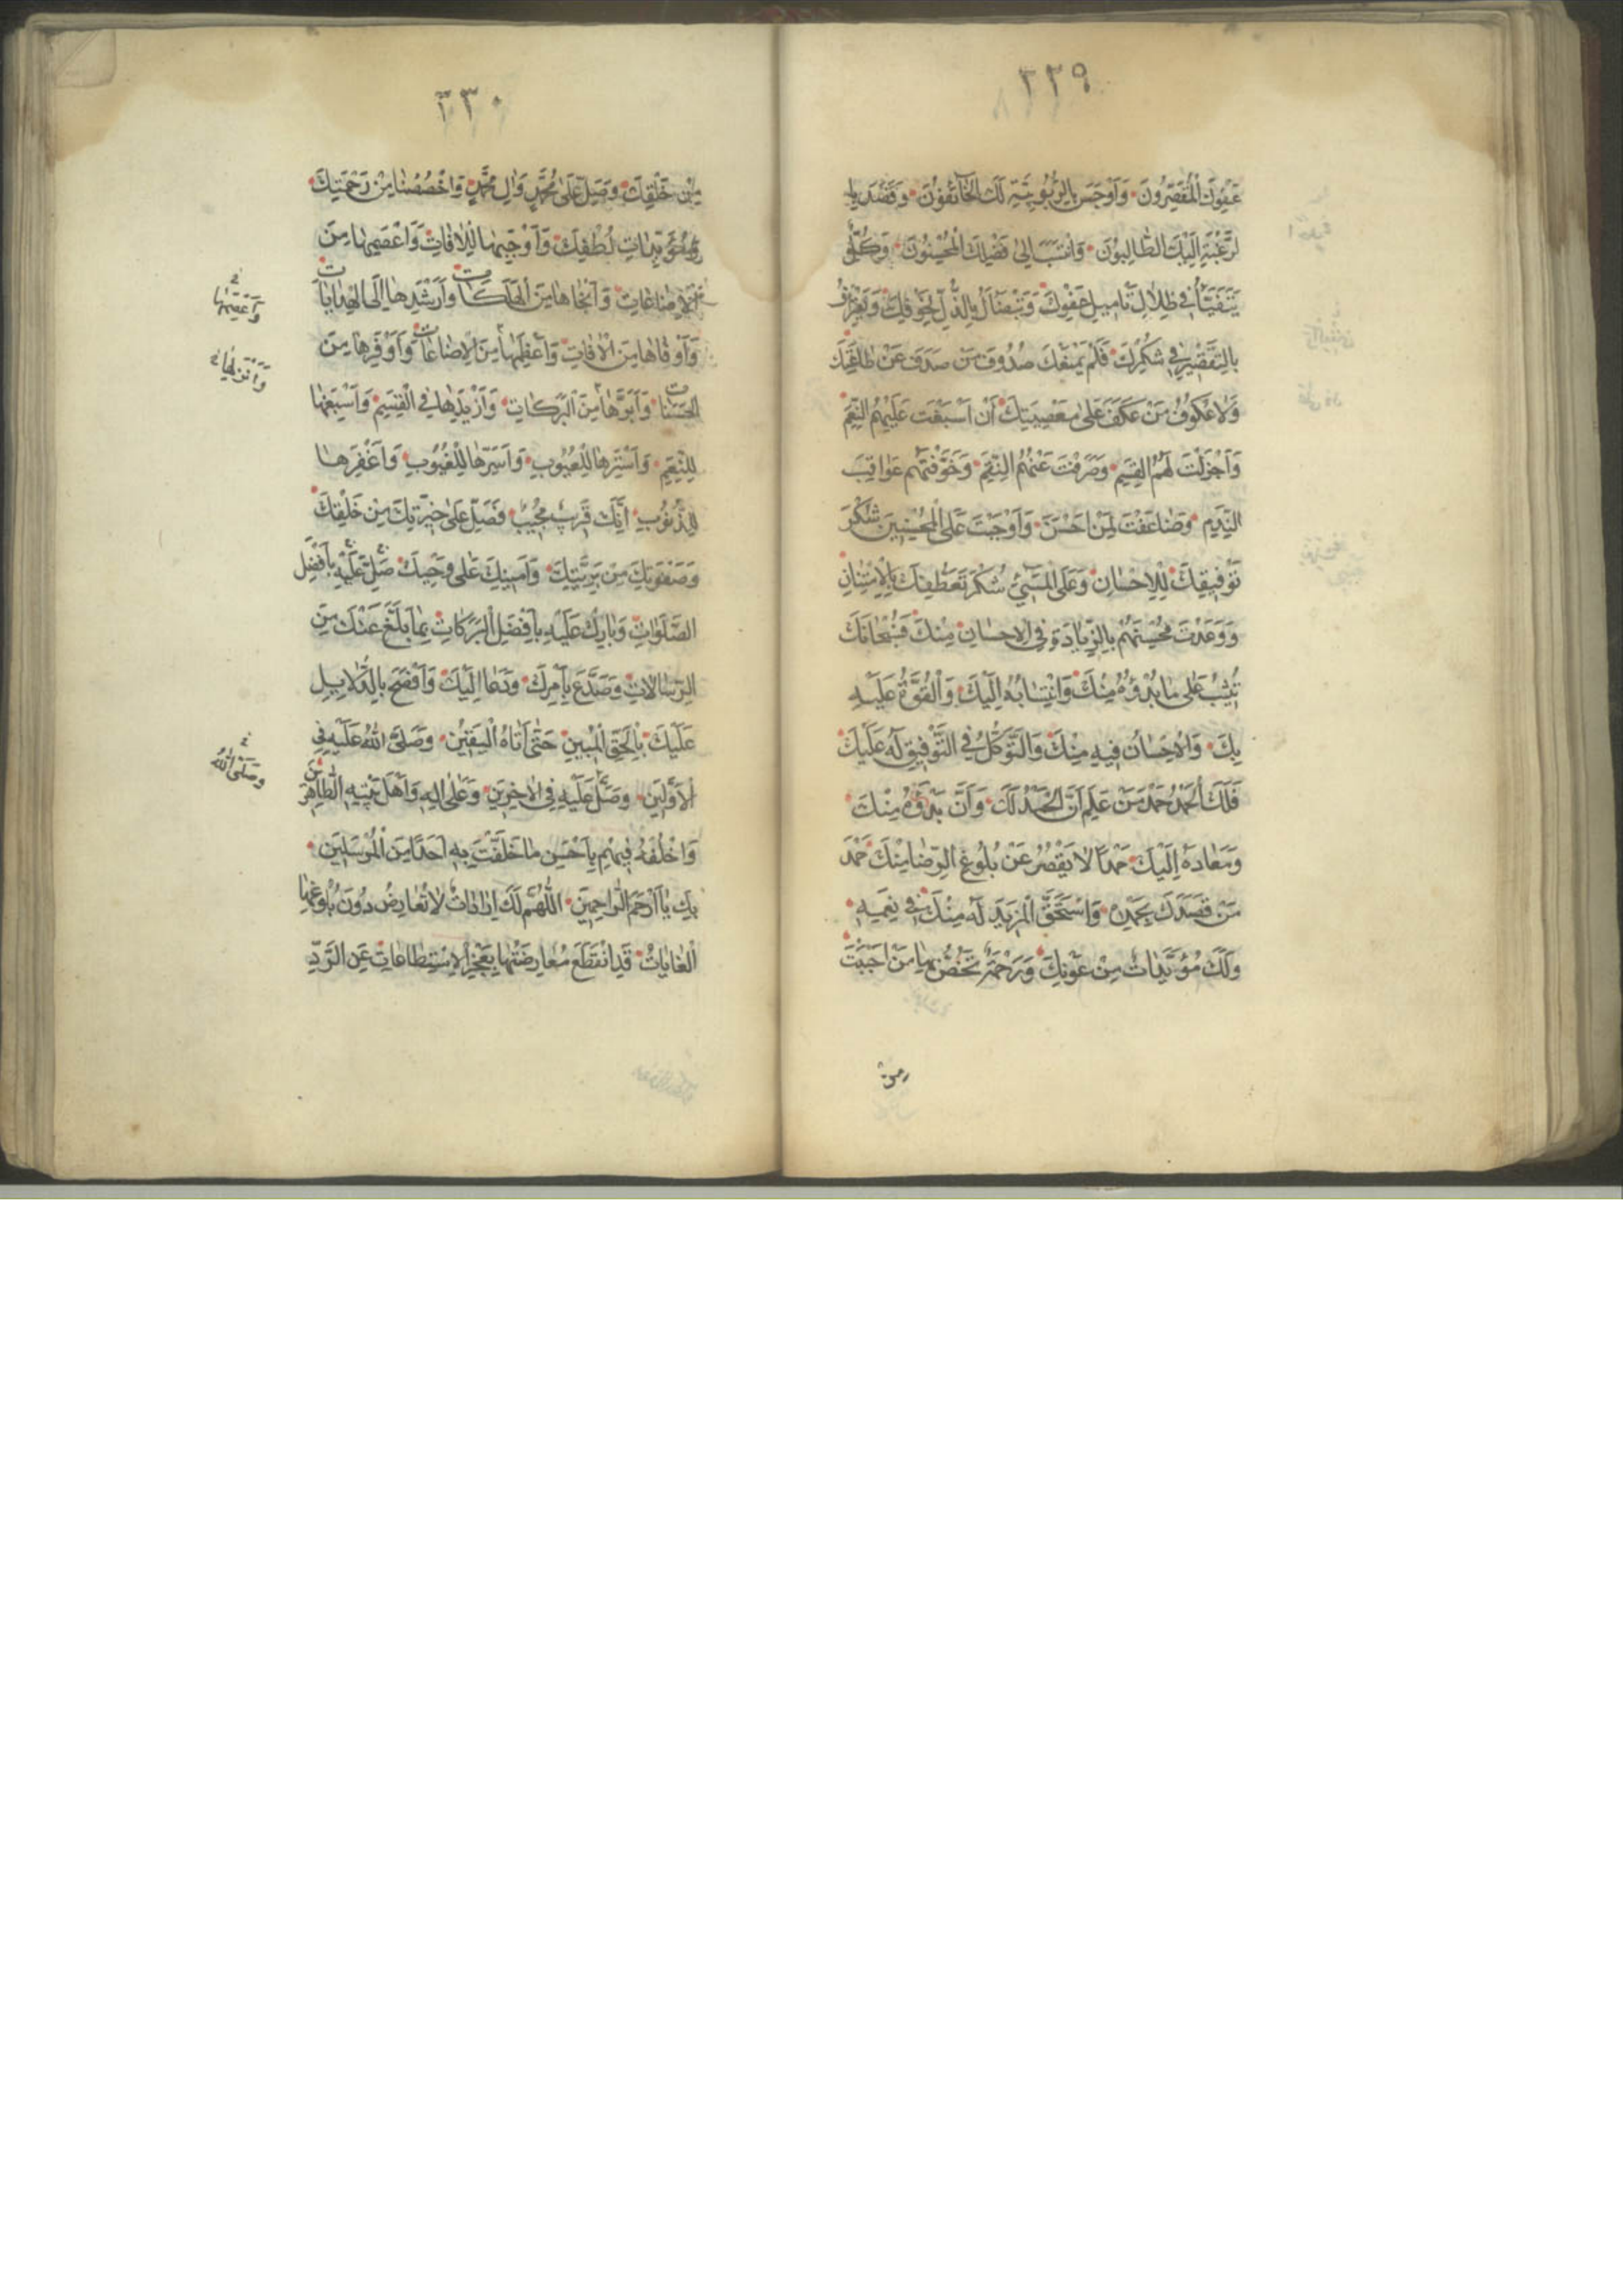 ٢٢٩
عَفْوِكَ الْمُقَصِّرُونَ وَاَوْجَسَ بِالرُّبُوبِيَّةِ لَكَ الْخَآئِفُونَ وَقَصَدَ بِا
لرَّغْبَةِ اِلَيْكَ الطَّالِبُونَ وَانْتَسَبَ اِلىٰ فَضْلِكَ الْمُحْسِنُونَ وَكُلٌّ
يَتَفَيَّأُ فِي ظِلَالِ تَامِيلِ عَفْوِكَ وَيَتَضَاۤئَلُ بِالذُّلِّ لِخَوْفِكَ وَيَعْتَرِفُ
بِالتَّقْصِيرِ فِي شُكْرِكَ فَلَمْ يَمْنَعْكَ صُدُوفُ مَنْ صَدَفَ عَنْ طَاعَتِكَ
وَلَا عُكُوفُ مَنْ عَكَفَ عَلىٰ مَعْصِيَتِكَ اَنْ اَسْبَغْتَ عَلَيْهِمُ النِّعَمَ
وَاَجْزَلْتَ لَهُمُ الْقِسَمَ وَصَرَفْتَ عَنْهُمُ النِّقَمَ وَخَوَّفْتَهُمْ عَوَاقِبَ
النَّدَمِ وَضَاعَفْتَ لِمَنْ اَحْسَنَ وَاَوْجَبْتَ عَلَى الْمُحْسِنِينَ شُكْرَ
تَوْفِيقِكَ لِلْاِحْسَانِ وَعَلَى الْمُسِيۤءِ شُكْرَ تَعَطُّفِكَ بِالْاِمْتِنَانِ
وَوَعَدْتَ مُحْسِنَهُمْ بِالزِّيَادَةِ فِي الْاِحْسَانِ مِنْكَ فَسُبْحَانَكَ
تُثِيبُ عَلىٰ مَا بُدْؤُهُ مِنْكَ وَانْتِسَابُهُ اِلَيْكَ وَالْقُوَّةُ عَلَيْهِ
بِكَ وَالْاِحْسَانُ فِيهِ مِنْكَ وَالتَّوَكُّلُ فِي التَّوْفِيقِ لَهُ عَلَيْكَ
فَلَكَ الْحَمْدُ حَمْدَ مَنْ عَلِمَ اَنَّ الْحَمْدَ لَكَ وَاَنَّ بَدْؤَهُ مِنْكَ
وَمَعَادَهُ اِلَيْكَ حَمْدًا لَا يَقْصُرُ عَنْ بُلُوغِ الرِّضَا مِنْكَ حَمْدَ
مَنْ قَصَدَكَ بِحَمْدِهِ وَاسْتَحَقَّ الْمَزِيدَ لَهُ مِنْكَ فِي نِعَمِهِ
وَلَكَ مُؤَيَّدَاتٌ مِنْ عَوْنِكَ وَرَحْمَةٌ تَخُصُّ بِهَا مَنْ اَحْبَبْتَ
من
٢٣٠
مِنْ خَلْقِكَ وَصَلِّ عَلىٰ مُحَمَّدٍ وَاٰلِ مُحَمَّدٍ وَاخْصُصْنَا مِنْ رَحْمَتِكَ
وَمُؤَيِّدَاتِ لُطْفِكَ وَاَوْجَبِهَا لِلْاِقَالَاتِ وَاَعْصَمِهَا مِنَ
الْاِضَاعَاتِ وَاَنْجَاهَا مِنَ الْهَلَكَاتِ وَاَرْشَدِهَا اِلَى الْهِدَايَاتِ
وَاَوْقَاهَا مِنَ الْاٰفَاتِ وَاَوْفَرِهَا مِنَ
الْحَسَنَاتِ وَاٰثَرِهَا مِنَ الْبَرَكَاتِ وَاَزْيَدِهَا فِي الْقِسَمِ وَاَسْبَغِهَا
لِلنِّعَمِ وَاَسْتَرِهَا لِلْعُيُوبِ وَاَسَرِّهَا لِلْغُيُوبِ وَاَغْفَرِهَا
لِلذُّنُوبِ اِنَّكَ قَرِيبٌ مُجِيبٌ فَصَلِّ عَلىٰ خِيَرَتِكَ مِنْ خَلْقِكَ
وَصَفْوَتِكَ مِنْ بَرِيَّتِكَ وَاَمِينِكَ عَلىٰ وَحْيِكَ صَلِّ عَلَيْهِ بِاَفْضَلِ
الصَّلَوَاتِ وَبَارِكْ عَلَيْهِ بِاَفْضَلِ الْبَرَكَاتِ بِمَا بَلَّغَ عَنْكَ مِنَ
الرِّسَالَاتِ وَصَدَعَ بِاَمْرِكَ وَدَعَا اِلَيْكَ وَاَفْصَحَ بِالدَّلَايِلِ
عَلَيْكَ بِالْحَقِّ الْمُبِينِ حَتّىٰ اَتَاهُ الْيَقِينُ وَصَلَّى اللّٰهُ عَلَيْهِ فِي
الْاَوَّلِينَ وَصَلِّ عَلَيْهِ فِي الْاٰخِرِينَ وَعَلىٰ اٰلِهِ وَاَهْلِ بَيْتِهِ الطَّاهِرِينَ
وَاخْلُفْهُ فِيهِمْ بِاَحْسَنِ مَا خَلَفْتَ بِهِ اَحَدًا مِنَ الْمُرْسَلِينَ
بِكَ يَا اَرْحَمَ الرَّاحِمِينَ اَللّٰهُمَّ لَكَ اِرَادَاتٌ لَا تُعَارَضُ دُونَ بُلُوغِهَا
الْغَايَاتُ قَدِ انْقَطَعَ مُعَارَضَتُهَا بِعَجْزِ الْاِسْتِطَاعَاتِ عَنِ الرَّدِّ
وَصَلَّى اللّٰهُ